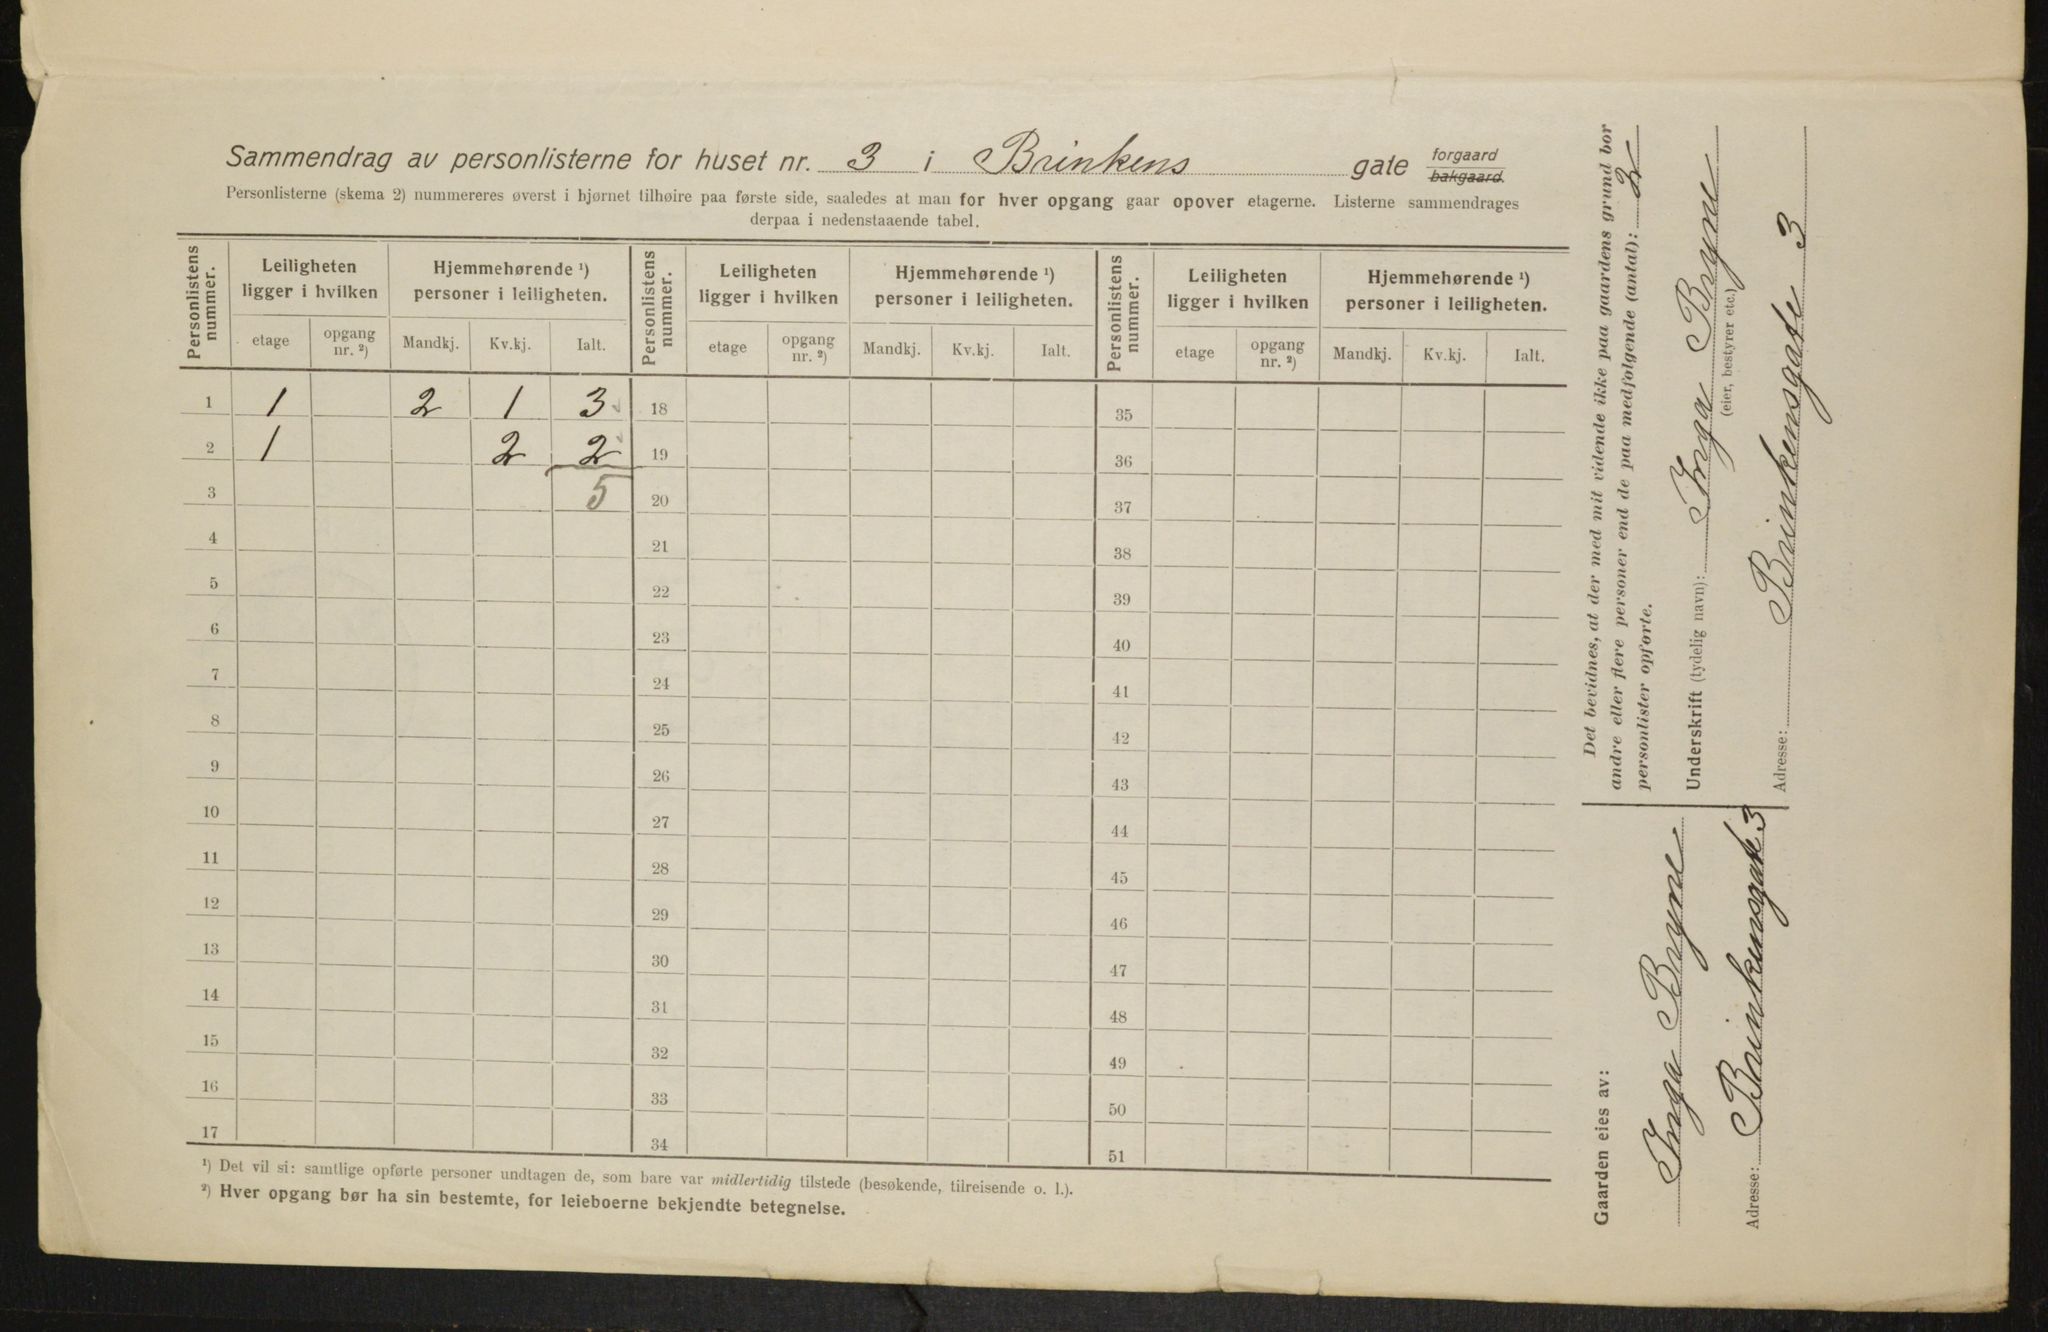 Sammendrag av personlisterne for huset nr. 3 i Brinkens gate forgaard bakgaard.
Personlisterne (skema 2) nummereres øverst i hjørnet tilhøire paa første side, saaledes at man for hver opgang gaar opover etagerne. Listerne sammendrages
derpaa i nedenstaaende tabel.
Personlistens nummer. Leiligheten ligger i hvilken Hjemmehørende ¹) personer i leiligheten. Personlistens nummer. Leiligheten ligger i hvilken Hjemmehørende ¹) personer i leiligheten. Personlistens nummer. Leiligheten ligger i hvilken Hjemmehørende ¹) personer i leiligheten.
etage opgang nr. ²) Mandkj. Kv.kj. Ialt. etage opgang nr. ²) Mandkj. Kv.kj. Ialt. etage opgang nr. ²) Mandkj. Kv.kj. Ialt.
1 1 2 1 3 18 35
2 1 2 2 19 36
3 5 20 37
4 21 38
5 22 39
6 23 40
7 24 41
8 25 42
9 26 43
10 27 44
11 28 45
12 29 46
13 30 47
14 31 48
15 32 49
16 33 50
17 34 51
¹) Det vil si: samtlige opførte personer undtagen de, som bare var midlertidig tilstede (besøkende, tilreisende o. l.).
²) Hver opgang bør ha sin bestemte, for leieboerne bekjendte betegnelse.
Det bevidnes, at der med mit vidende ikke paa gaardens grund bor
andre eller flere personer end de paa medfølgende (antal): 2
personlister opførte.
Underskrift (tydelig navn): Inga Bryne
(eier, bestyrer etc.)
Adresse: Brinkensgate 3
Gaarden eies av:
Inga Bryne
Adresse: Brinkensgate 3